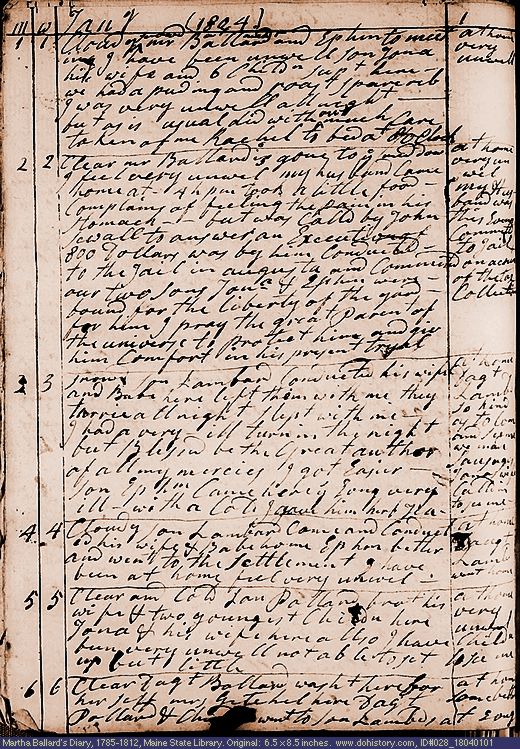 m w Jany (1804) 1
1 1 Cloudy mr Ballard and Ephm to meet at home
ing I have been unwell son Jona very
his wife and 6 Childn supt here unwell
we had a puding and roast spararib
I was very unwell all night
but as is usual did without much Care
taken of me Rachel to bed at
2 2 Clear mr Ballard is gone to at home
I feel very unwel my husband Came very un
home at 4 h pm took a little food wel
Complains of feeling the pain in his my hus
stomach but was Calld by John band was
Sewall to answer an Execution of this Evng
800 Dollars was by him Conducted Committd
to the Jail in augusta and Committed to Jail
our two sons Jona & Ephm were on account
bound for the liberty of the yard of the
for him I pray the great parent of Collection
the universe to protect him and give
him Comfort in his present tryal
3 snows son Lambard Conducted his wife at home
and Babe here left them with me they Dagt
tarried all night slept with me Lambd
I had a very ill turn in the night
but Blessd be the Great author
of all my mercies I got Easier
son Ephm Came here Evng very
ill with a Cold gave him hot
4 4 Cloudy son Lambard Come and Conduct at home
ed his wife & Babe home Ephm better Dagt
and went to the settlement I have Lambd
been at home feel very unwel went home
5 5 Clear and Cold son Pollard brot his at home
wife & two youngest Childn here very
Jona & his wife here allso I have unwel
been very unwell not able to set Childn
up but little to see me
6 6 Clear Dagt Ballard washt here for at home
her self mr here Dagt somebetter
Pollard & went to son Lambds at Evng
Martha Ballard's Diary, 1785-1812, Maine State Library. Original: 6.5 x 8.5 inches. www.dohistory.com, ID#028_18040101